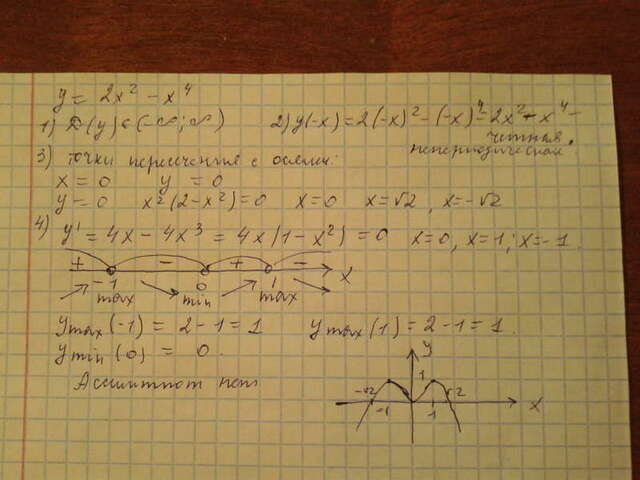 y = 2x² - x⁴
1) D(y) ∈ (-∞; ∞) 2) y(-x) = 2(-x)² - (-x)⁴ = 2x² - x⁴ -
четная,
непериодическая.
3) точки пересечения с осями:
x = 0 y = 0
y = 0 x²(2-x²) = 0 x = 0 x = √2, x = -√2
4) y' = 4x - 4x³ = 4x(1-x²) = 0 x=0, x=1; x=-1.
+ - + - x
-1 0 1
max min max
y max (-1) = 2-1 = 1 y max (1) = 2-1 = 1.
y min (0) = 0.
Ассимптот нет
y
1
-√2 √2
-1 1 x